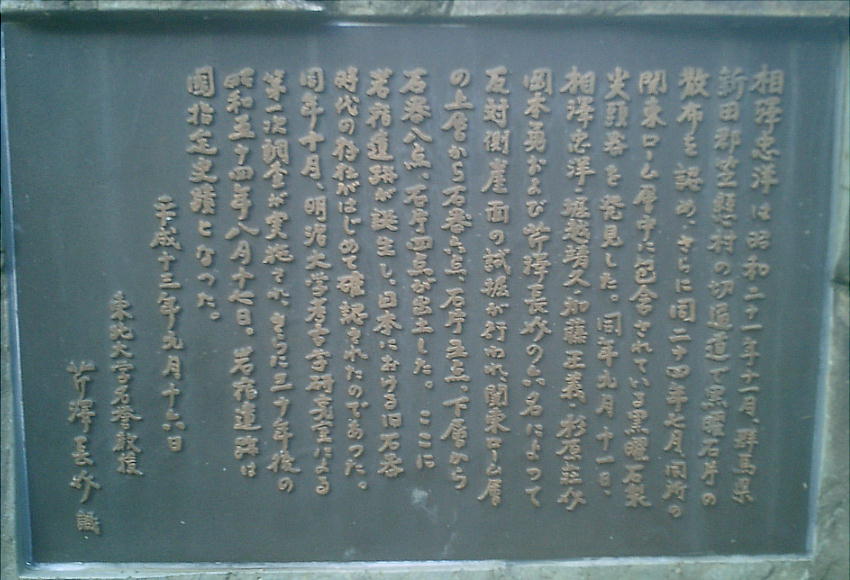 相澤忠洋は昭和二十一年十一月、群馬県
新田郡笠懸村の切通道で黒曜石片の
散布を認め、さらに同二十四年七月同所の
関東ローム層中に包含されている黒曜石製
尖頭器を発見した。同年九月十一日、
相澤忠洋・堀越靖久・加藤正義・杉原荘介・
岡本勇および芹澤長介の六名によって
反対側崖面の試掘が行われ、関東ローム層
の上層から石器六点、石片五点、下層から
石器八点、石片四点が出土した。ここに
岩宿遺跡が誕生し、日本における旧石器
時代の存在がはじめて確認されたのであった。
同年十月、明治大学考古学研究室による
第一次調査が実施され、さらに三十年後の
昭和五十四年八月十七日。岩宿遺跡は
国指定史蹟となった。
平成十三年九月十六日
東北大学名誉教授
芹澤長介 識